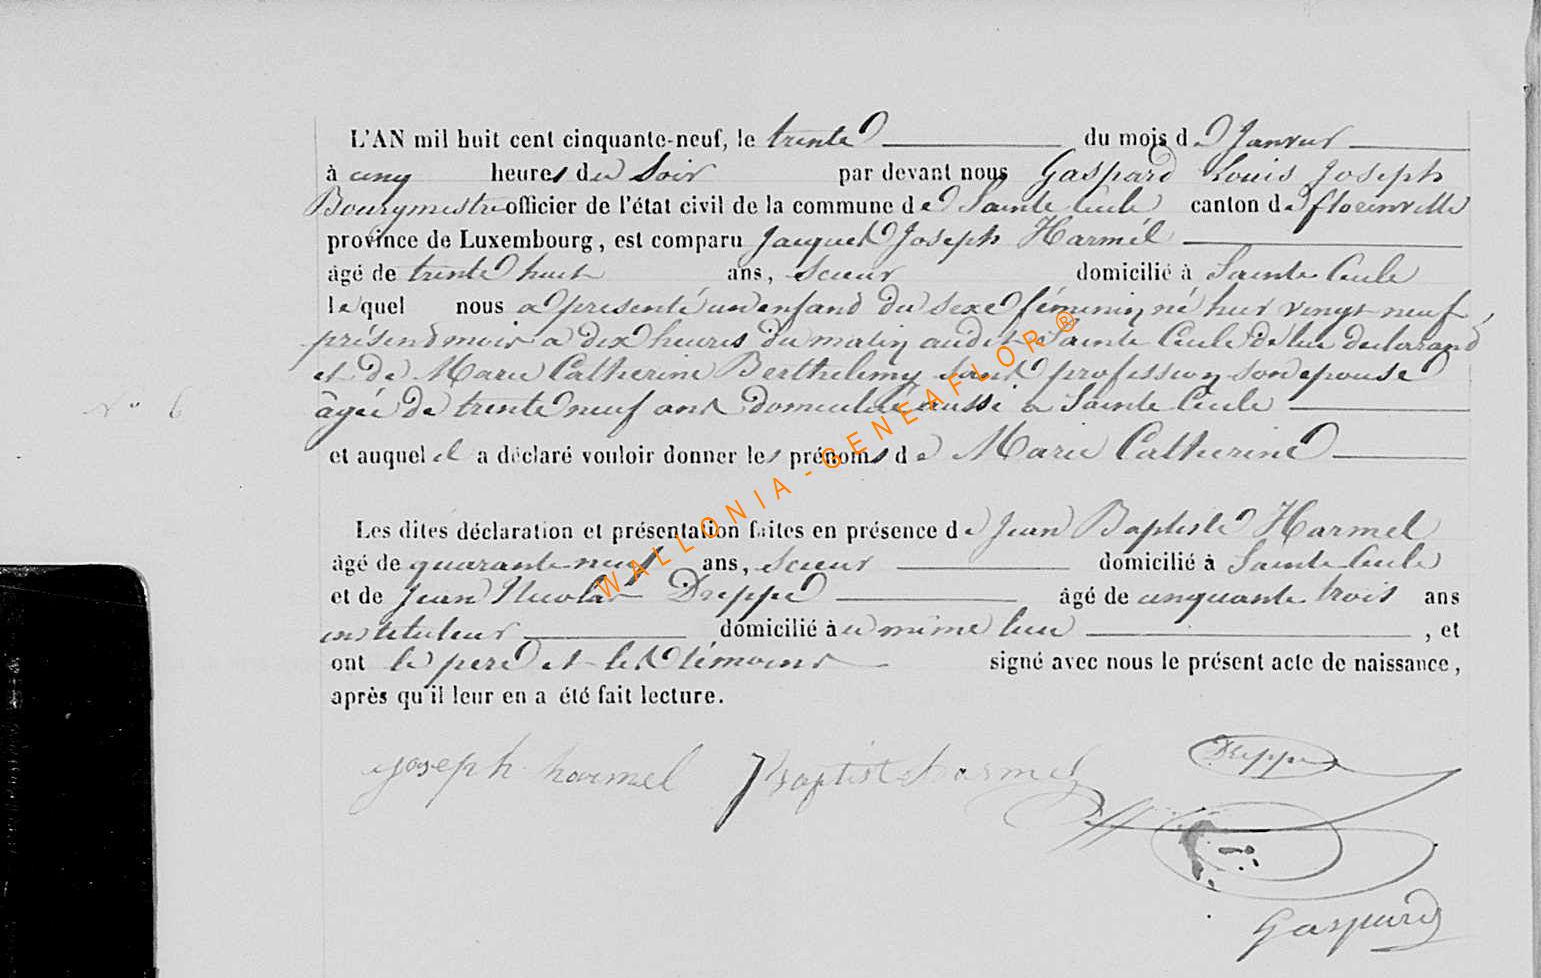 L'AN mil huit cent cinquante-neuf, le trente du mois de Janvier
à cinq heures du Soir par devant nous Gaspard Louis Joseph
Bourgmestre officier de l'état civil de la commune de Sainte Cécile canton de florenville
province de Luxembourg, est comparu Jacques Joseph Harmél
âgé de trente huit ans, Scieur domicilié à Sainte Cécile
lequel nous a présenté un enfand du sexe féminin né hier vingt neuf,
présend mois a dix heures du matin audit Sainte Cécile de lui declarand
et de Marie Catherine Berthelemy sans profession son epouse
N° 6
âgée de trente neuf ans domiciliée aussi a Sainte Cécile
et auquel il a déclaré vouloir donner les prénoms de Marie Catherine
Les dites déclaration et présentation faites en présence de Jean Baptiste Harmel
âgé de quarante neuf ans, Scieur domicilié à Sainte Cécile
et de Jean Nicolas Dreppe âgé de cinquante trois ans
instituteur domicilié au même lieu , et
ont le pere et les témoins signé avec nous le présent acte de naissance,
après qu'il leur en a été fait lecture.
WALLONIA - GENEAFLOR ®
joseph harmel J Baptist harmel Dreppe
Gaspard